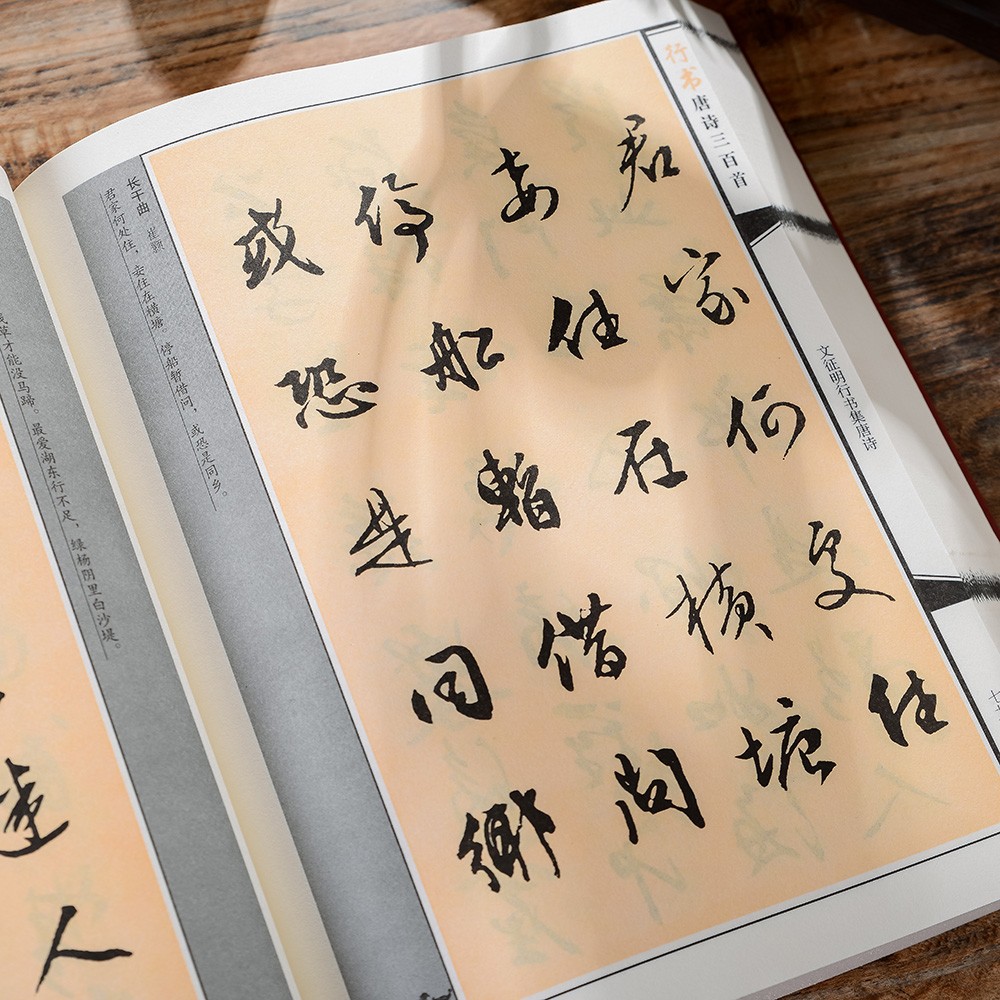 行书唐诗三百首
文征明行书集唐诗
君家何處住
妾住在横塘
停船暫借問
或恐是同鄉
长干曲 崔颢
君家何处住，妾住在横塘。停船暂借问，或恐是同乡。
草才能没马蹄。最爱湖东行不足，绿杨阴里白沙堤。
人